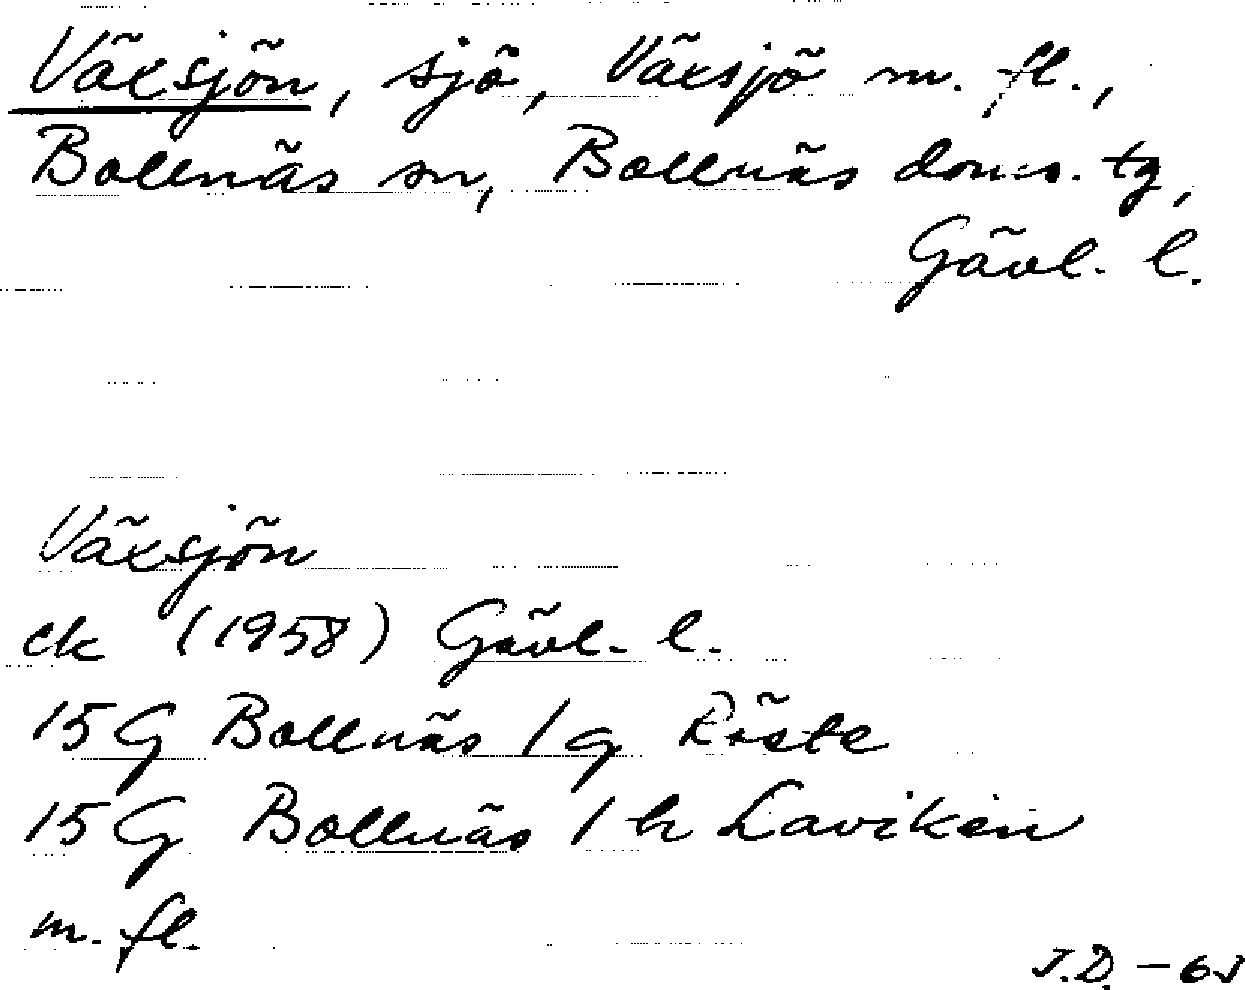 Växsjön, sjö, Växsjö m. fl.,
Bollnäs sn, Bollnäs doms. tg,
Gävl. l.
Växsjön
ek (1958) Gävl. l.
15 G Bollnäs 1 g Röste
15 G Bollnäs 1 h Laviken
m. fl.
J.D. -63